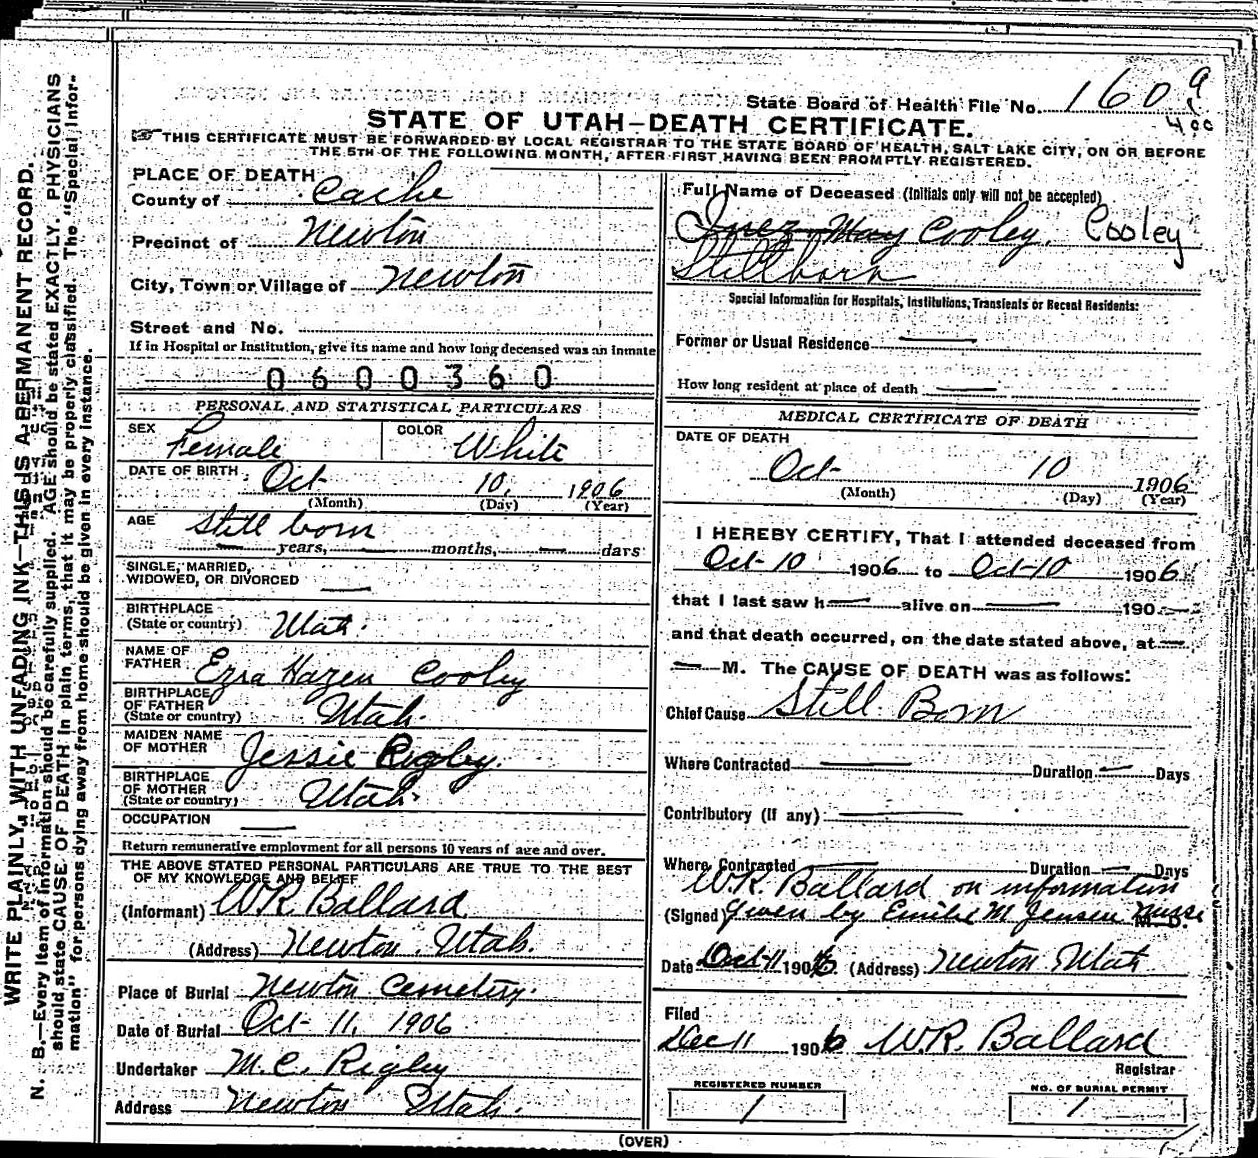 State Board of Health File No. 160 a
400
STATE OF UTAH—DEATH CERTIFICATE.
THIS CERTIFICATE MUST BE FORWARDED BY LOCAL REGISTRAR TO THE STATE BOARD OF HEALTH, SALT LAKE CITY, ON OR BEFORE
THE 5TH OF THE FOLLOWING MONTH, AFTER FIRST HAVING BEEN PROMPTLY REGISTERED.
WRITE PLAINLY, WITH UNFADING INK—THIS IS A PERMANENT RECORD.
N. B.—Every item of information should be carefully supplied. AGE should be stated EXACTLY. PHYSICIANS
should state CAUSE OF DEATH in plain terms, that it may be properly classified. The "Special Infor-
mation" for persons dying away from home should be given in every instance.
PLACE OF DEATH
County of Cache
Precinct of Newton
City, Town or Village of Newton
Street and No.
If in Hospital or Institution, give its name and how long deceased was an inmate
0600360
PERSONAL AND STATISTICAL PARTICULARS
SEX Female COLOR White
DATE OF BIRTH Oct 10, 1906
(Month) (Day) (Year)
AGE Still born
— years, — months, — days
SINGLE, MARRIED,
WIDOWED, OR DIVORCED —
BIRTHPLACE
(State or country) Utah.
NAME OF
FATHER Ezra Hazen Cooley
BIRTHPLACE
OF FATHER
(State or country) Utah.
MAIDEN NAME
OF MOTHER Jessie Rigby.
BIRTHPLACE
OF MOTHER
(State or country) Utah.
OCCUPATION —
Return remunerative employment for all persons 10 years of age and over.
THE ABOVE STATED PERSONAL PARTICULARS ARE TRUE TO THE BEST
OF MY KNOWLEDGE AND BELIEF
(Informant) W R Ballard
(Address) Newton Utah.
Place of Burial Newton Cemetery.
Date of Burial Oct- 11, 1906
Undertaker M. C. Rigby
Address Newton Utah.
Full Name of Deceased (Initials only will not be accepted)
Inez May Cooley. Cooley
Stillborn
Special Information for Hospitals, Institutions, Transients or Recent Residents:
Former or Usual Residence —
How long resident at place of death —
MEDICAL CERTIFICATE OF DEATH
DATE OF DEATH
Oct- 10 1906
(Month) (Day) (Year)
I HEREBY CERTIFY, That I attended deceased from
Oct-10 1906 to Oct-10 1906
that I last saw h— alive on — 190 —
and that death occurred, on the date stated above, at —
— M. The CAUSE OF DEATH was as follows:
Chief Cause Still Born
Where Contracted — Duration — Days
Contributory (If any) —
Where Contracted — Duration — Days
W.R. Ballard on information
(Signed) given by Emilie M. Jensen Nurse M. D.
Date Oct-11 1906. (Address) Newton Utah
Filed
Dec 11 1906 W.R. Ballard
Registrar
REGISTERED NUMBER
1
NO. OF BURIAL PERMIT
1
(OVER)